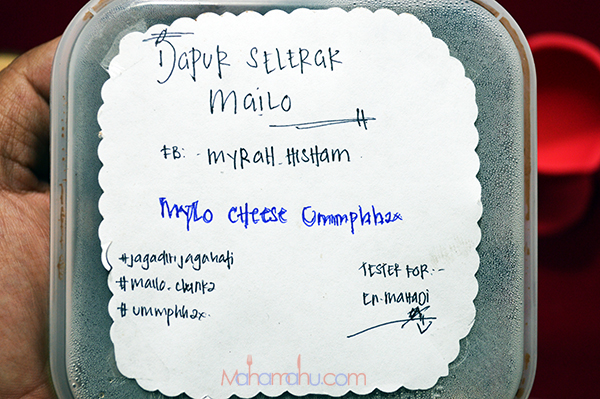 Dapur SELERAK
MaiLo
FB: MYRAH.HISHAM
MYLO CHEESE Ummphh2x
#jagadirijagahati
#mailo.chunkz
#ummphh2x.
TESTER FOR:-
En. MAHADI
Mahamahu.com